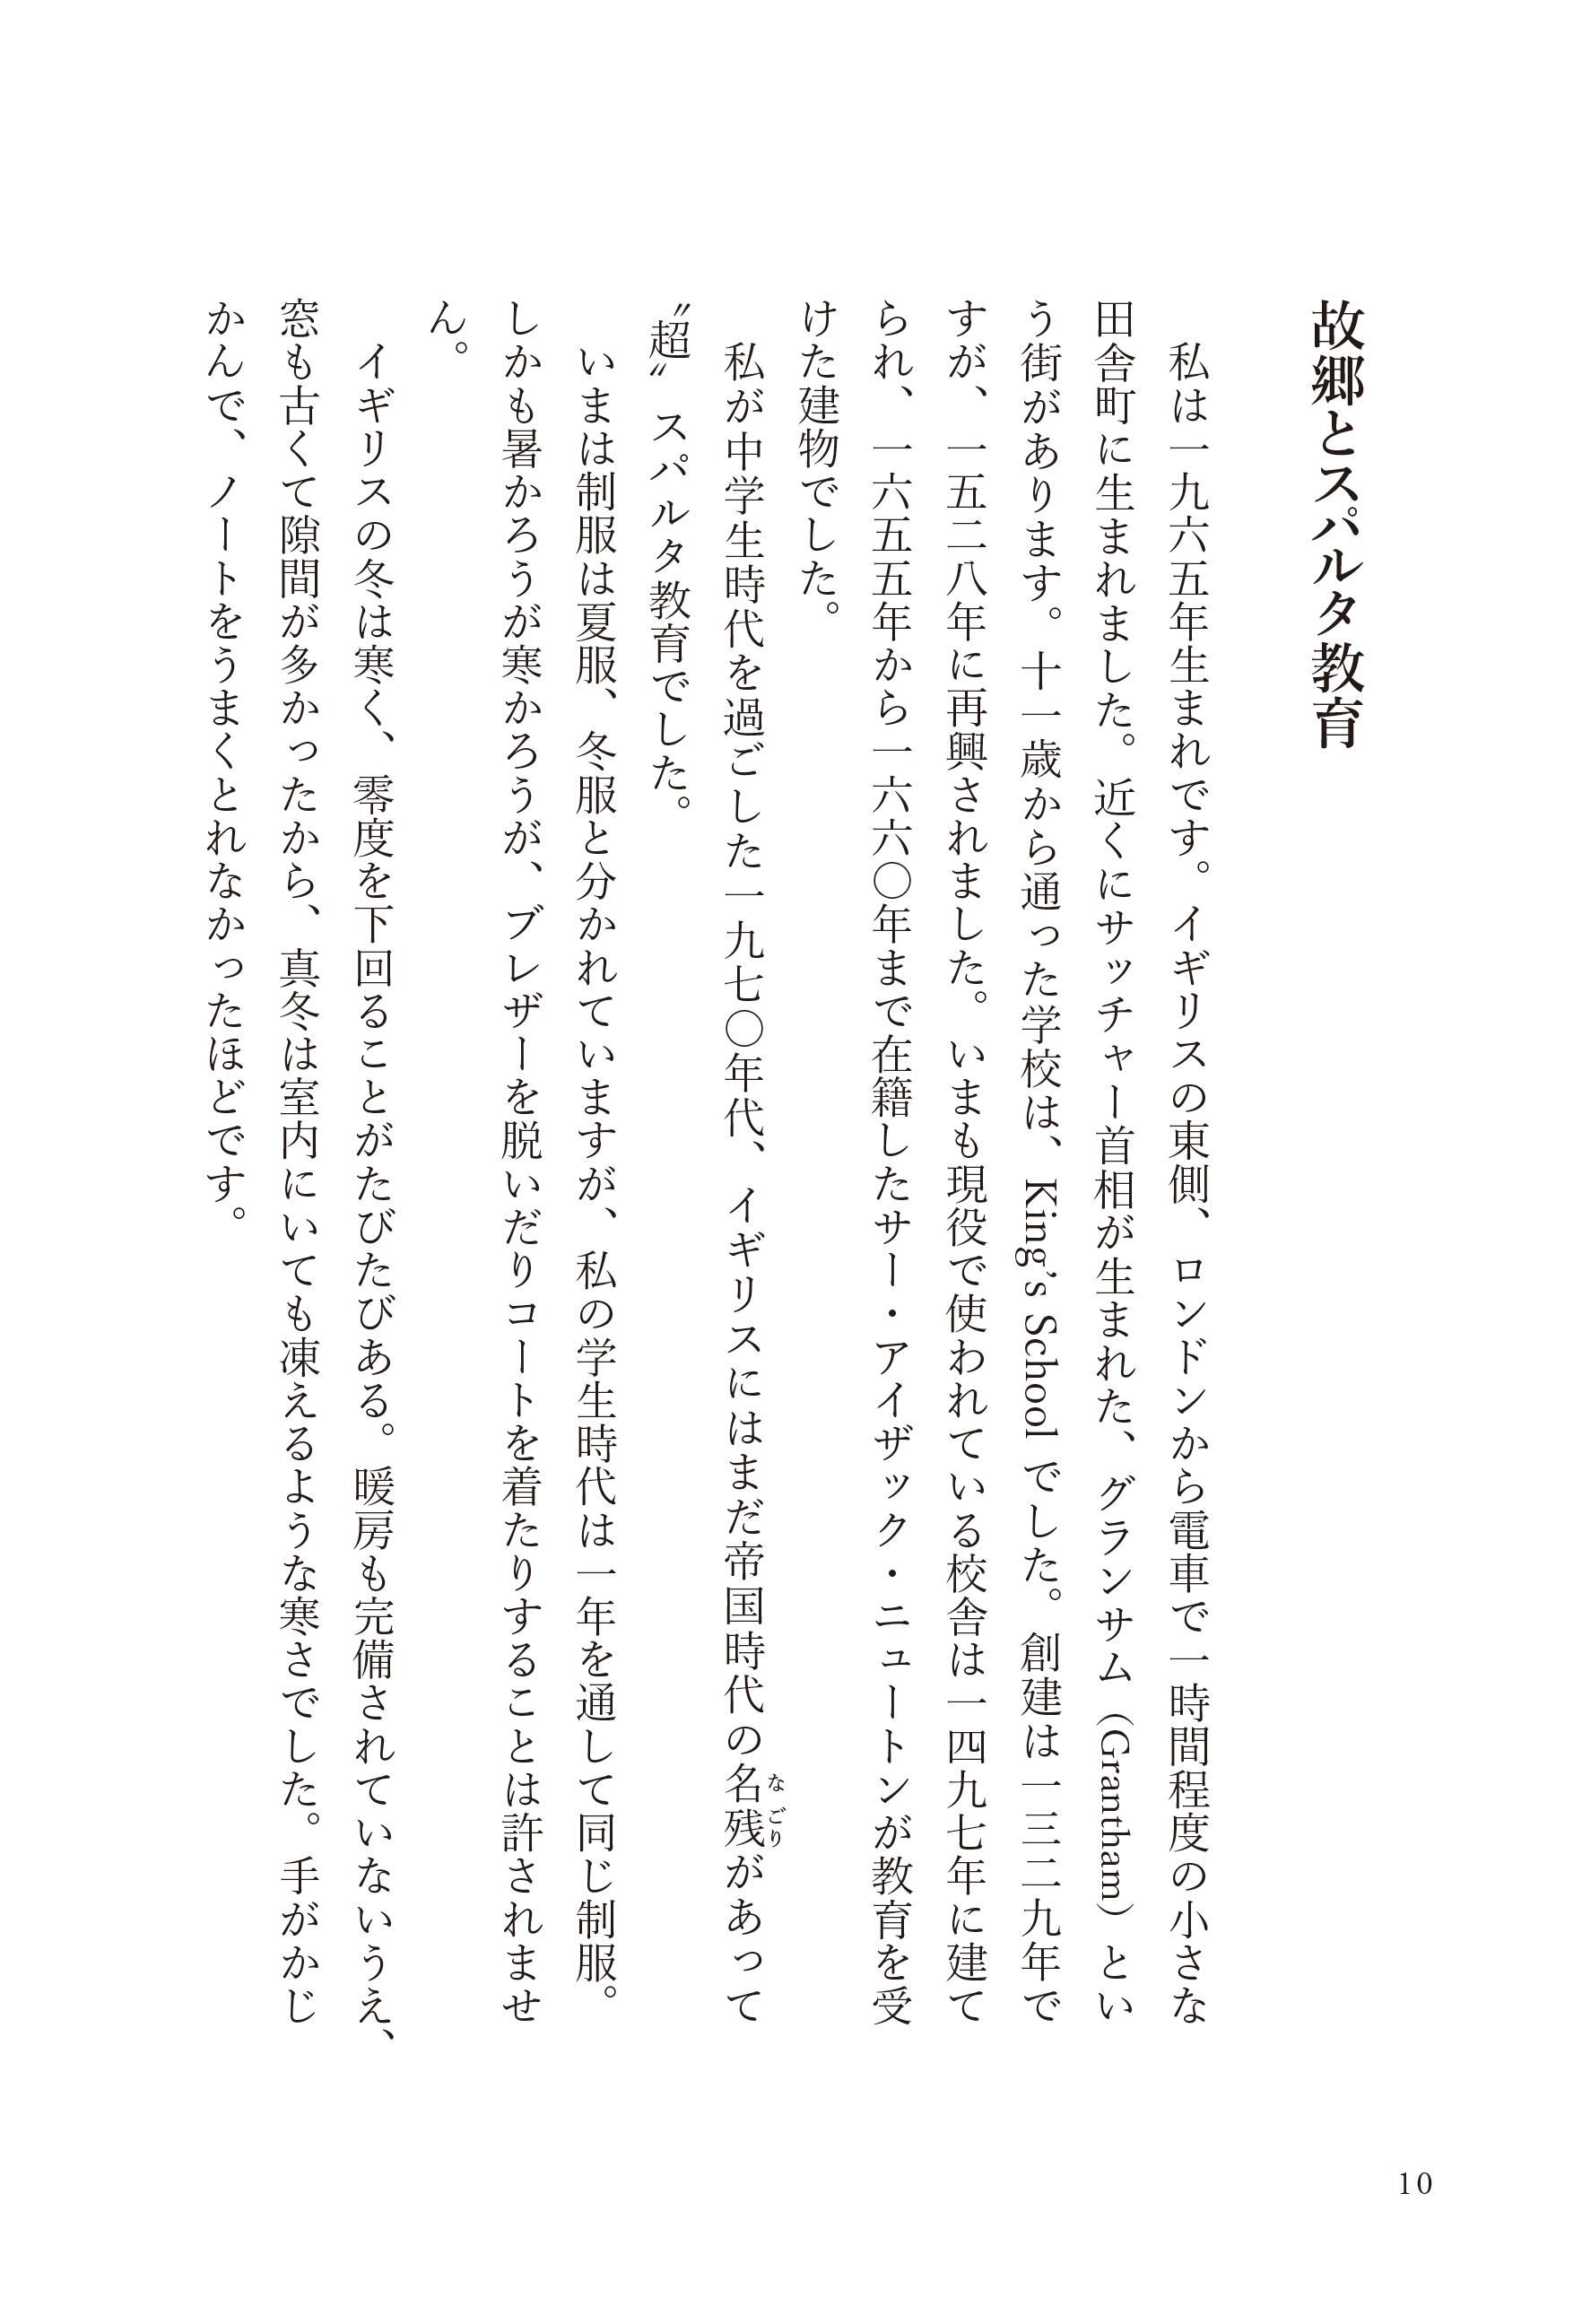 故郷とスパルタ教育
私は一九六五年生まれです。イギリスの東側、ロンドンから電車で一時間程度の小さな
田舎町に生まれました。近くにサッチャー首相が生まれた、グランサム（Grantham）とい
う街があります。十一歳から通った学校は、King’s School でした。創建は一三二九年で
すが、一五二八年に再興されました。いまも現役で使われている校舎は一四九七年に建て
られ、一六五五年から一六六〇年まで在籍したサー・アイザック・ニュートンが教育を受
けた建物でした。
私が中学生時代を過ごした一九七〇年代、イギリスにはまだ帝国時代の名残があって
なごり
〝超〟スパルタ教育でした。
いまは制服は夏服、冬服と分かれていますが、私の学生時代は一年を通して同じ制服。
しかも暑かろうが寒かろうが、ブレザーを脱いだりコートを着たりすることは許されませ
ん。
イギリスの冬は寒く、零度を下回ることがたびたびある。暖房も完備されていないうえ、
窓も古くて隙間が多かったから、真冬は室内にいても凍えるような寒さでした。手がかじ
かんで、ノートをうまくとれなかったほどです。
10